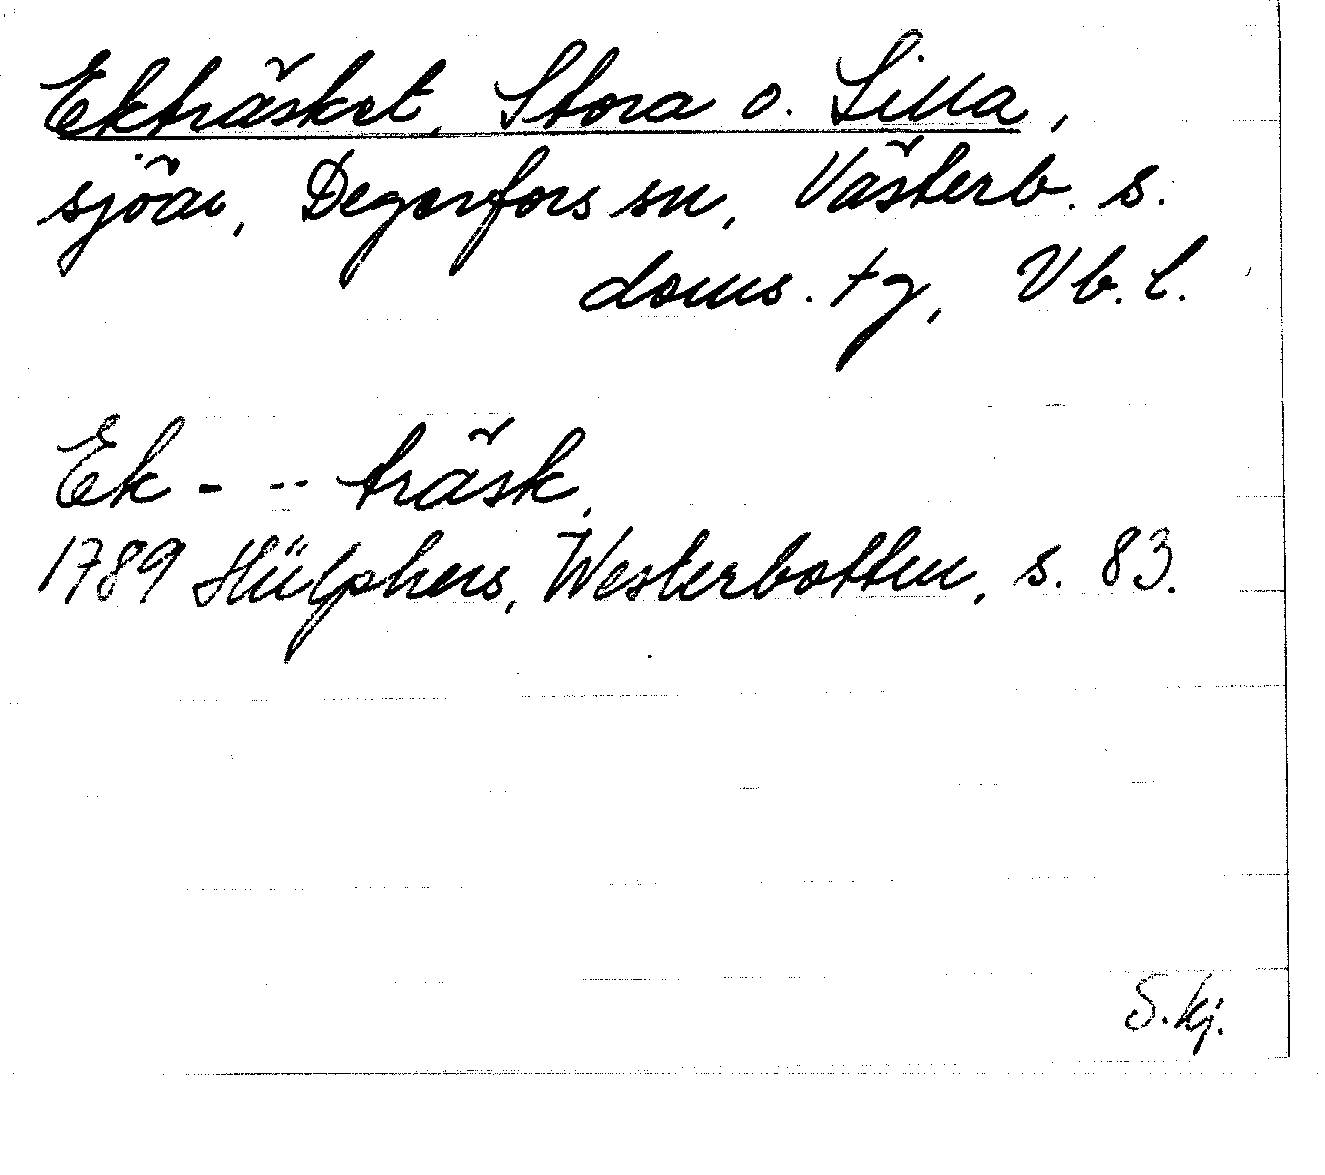 Ekträsket, Stora o. Lilla,
sjöar, Degerfors sn, Västerb. s.
doms. tg, Vb. l.
Ek - -- träsk.
1789 Hülphers, Westerbotten, s. 83.
S. Kj.